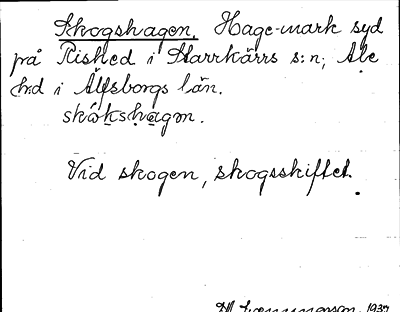 Skogshagen. Hage-mark syd
på Rished i Starrkärrs s:n, Ale
h:d i Älfsborgs län.
skókshagɒn.
Vid skogen, skogsskiftet.
1937